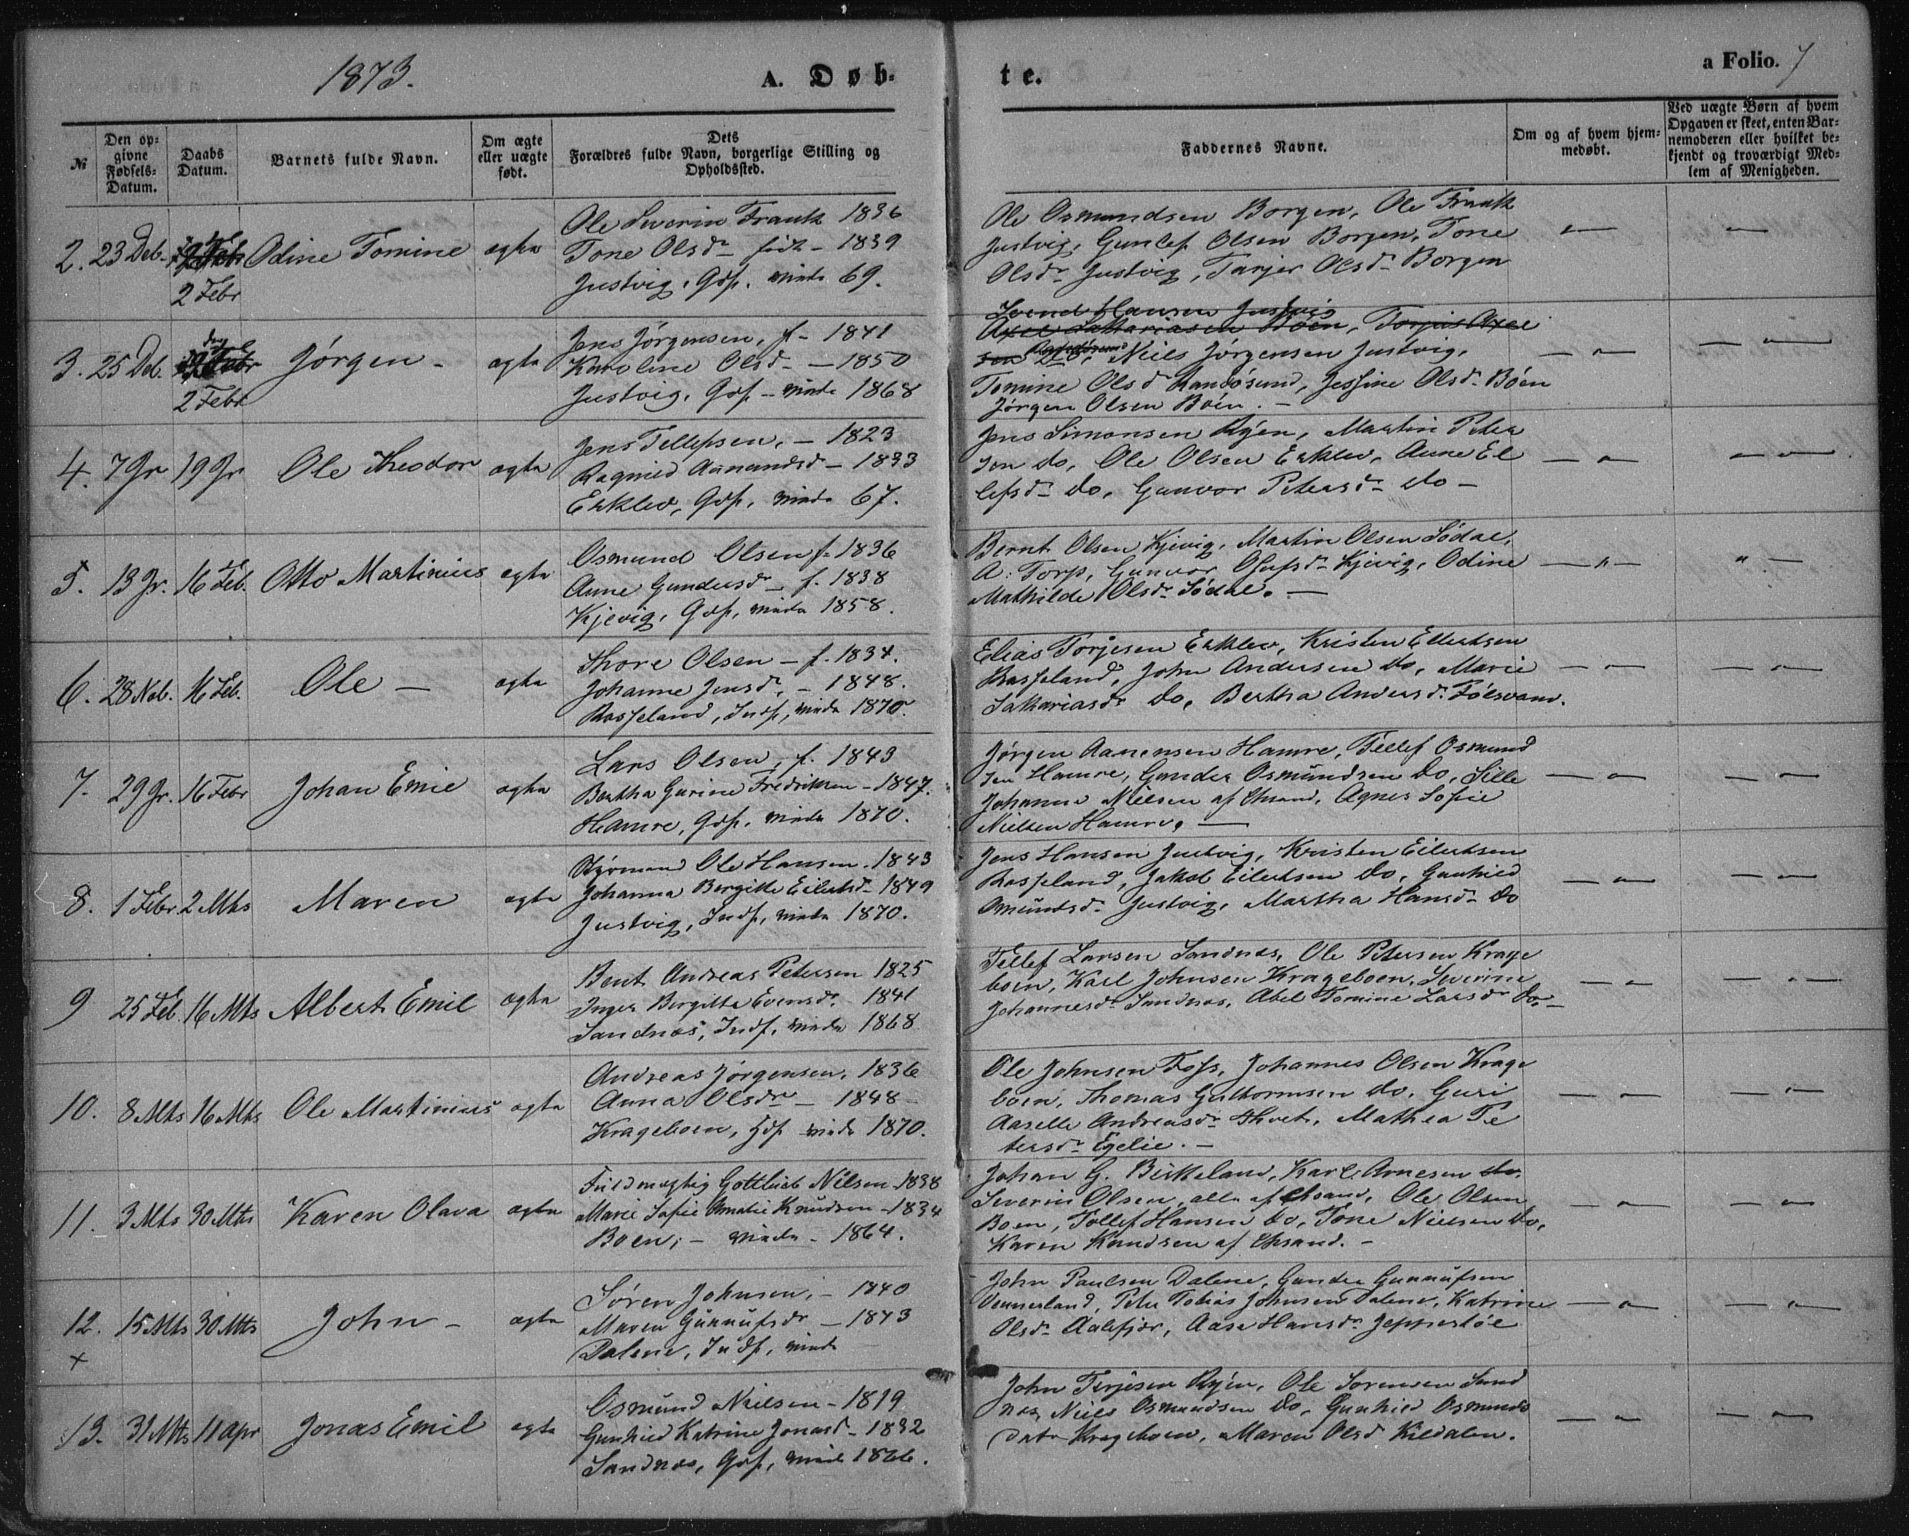 1873.
A. Døb-
te.
a Folio. 7
№
Den op-
givne
Fødsels-
Datum.
Daabs
Datum.
Barnets fulde Navn.
Om ægte
eller uægte
født.
Dets
Forældres fulde Navn, borgerlige Stilling og
Opholdssted.
Faddernes Navne.
Om og af hvem hjem-
medøbt.
Ved uægte Børn af hvem
Opgaven er skeet, enten Bar-
nemoderen eller hvilket be-
kjendt og troværdigt Med-
lem af Menigheden.
2. 23 Deb. 2 Febr Odine Tomine ægta
Ole Severin Frantz 1836
Tone Olsdr født 1839
Justvig, Gdf. vinde 69.
Ole Osmundsen Borgen, Ole Frantz
Justvig, Gunlef Olsen Borgen, Tone
Olsdr Justvig, Tarjer Olsdr Borgen
3. 25 Deb. 2 Febr Jørgen – ægta
Jens Jørgensen, f. 1841
Karoline Olsd – 1850
Justvig, Gdf – vinde 1868
Svend Hansen Justvig
Axel Sakariasen Boen, Torjus Axel
sen Do, Niels Jørgensen Justvig,
Tomine Olsd Randøsund, Jessine Olsdr Boen
Jørgen Olsen Boen. –
4. 7 Jr 19 Jr Ole Theodor ægta
Jens Tellefsen, – 1823
Ragnild Aanandsd – 1833
Erklev, Gdf, vinde 67.
Jens Simonsen Ryen, Martin Peter
sen do, Ole Olsen Erklev, Anne El
lefsdr do, Gunvor Petersdr do –
5. 13 Jr. 16 Feb. Otto Martinius ægta
Osmund Olsen f. 1836
Anne Gundersdr – f. 1838
Kjevig, Gdf, vinde 1858.
Bernt Olsen Kjevig, Martin Olsen Sødal,
A. Torp, Gunvor Olufsdr Kjevig, Odine
Mathilde Olsdr Sødal. –
6. 28 Neb. 16 Feb. Ole – ægta
Thore Olsen – f. 1834.
Johanne Jensdr, – 1848.
Rosseland, Indf, vinde 1870.
Elias Torjesen Erklev, Kristen Eilertsen
Rosseland, John Andersen do, Marie
Sakariasdr do, Bertha Andersdr Følsvand.
7. 29 Jr. 16 Febr Johan Emil ægta
Lars Olsen, f. 1843
Bertha Gurine Fredriksen – 1847.
Hamre, Gdf, vinde 1870.
Jørgen Aanensen Hamre, Tellef Osmund
sen Hamre, Gunder Osmundsen do, Sille
Johanne Nielsen af Chsand, Agnes Sofie
Nielsen Hamre. –
8. 1 Febr 2 Mts Maren ægta
Styrmand Ole Hansen. 1843
Johanna Bergitte Eilertsd – 1849
Justvig, Indf, vinde 1870.
Jens Hansen Justvig, Kristen Eilertsen
Rosseland, Jakob Eilertsen do, Gunhild
Omundsdr Justvig, Martha Hansdr do
9 25 Feb. 16 Mts Albert Emil ægta
Bent Andreas Petersen 1825
Inger Birgitte Evensdr 1841
Sandnæs, Indf, vinde 1868
Tellef Larsen Sandnæs, Ole Petersen Krage
boen, Karl Johnsen Krageboen, Severine
Johannesdr Sandnæs, Abel Tomine Larsdr do. –
10. 8 Mts 16 Mts Ole Martinius ægta
Andreas Jørgensen, 1836
Anna Olsdr – 1848
Krageboen, Gdf vinde 1870.
Ole Johnsen Foss, Johannes Olsen Krage
boen, Thomas Guttormsen do, Guri
Aaselle Andreasdr Thvet, Mathea Pe
tersdr Egelie. –
11. 3 Mts 30 Mts Karen Olava ægta
Fuldmægtig Gottlieb Nilsen 1838
Marie Sofie Amalie Knudsen – 1834
Boen, – vinde – 1864.
Johan G. Birkeland, Karl Arnesen do.
Severin Olsen, alle af Chsand, Ole Olsen
Boen, Tellef Hansen do, Tone Nielsen do,
Karen Knudsen af Chsand. –
12. 15 Mts 30 Mts John – ægta
+
Søren Johnsen, – 1840
Maren Gunnufsdr – 1843
Dalene, Indf, vinde
John Paulsen Dalene, Gunder Gunnufsen
Vennerland, Peter Tobias Johnsen Dalene, Katrine
Olsdr Aalefjær, Aase Hansdr Jeppestøl
13. 31 Mts 11 Apr Jonas Emil ægta
Osmund Nielsen – 1819
Gunhild Katrine Jonasd – 1832
Sandnæs, Gdf, vinde 1866.
John Terjesen Ryen, Ole Sørensen Sand
næs, Niels Osmundsen do, Gunhild Osmunds
datr Krageboen, Maren Olsd Kildalen.